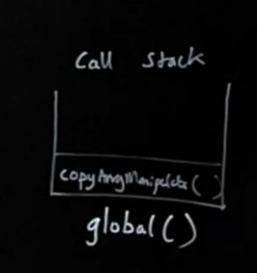 Call Stack
copyArrManipulate()
global()